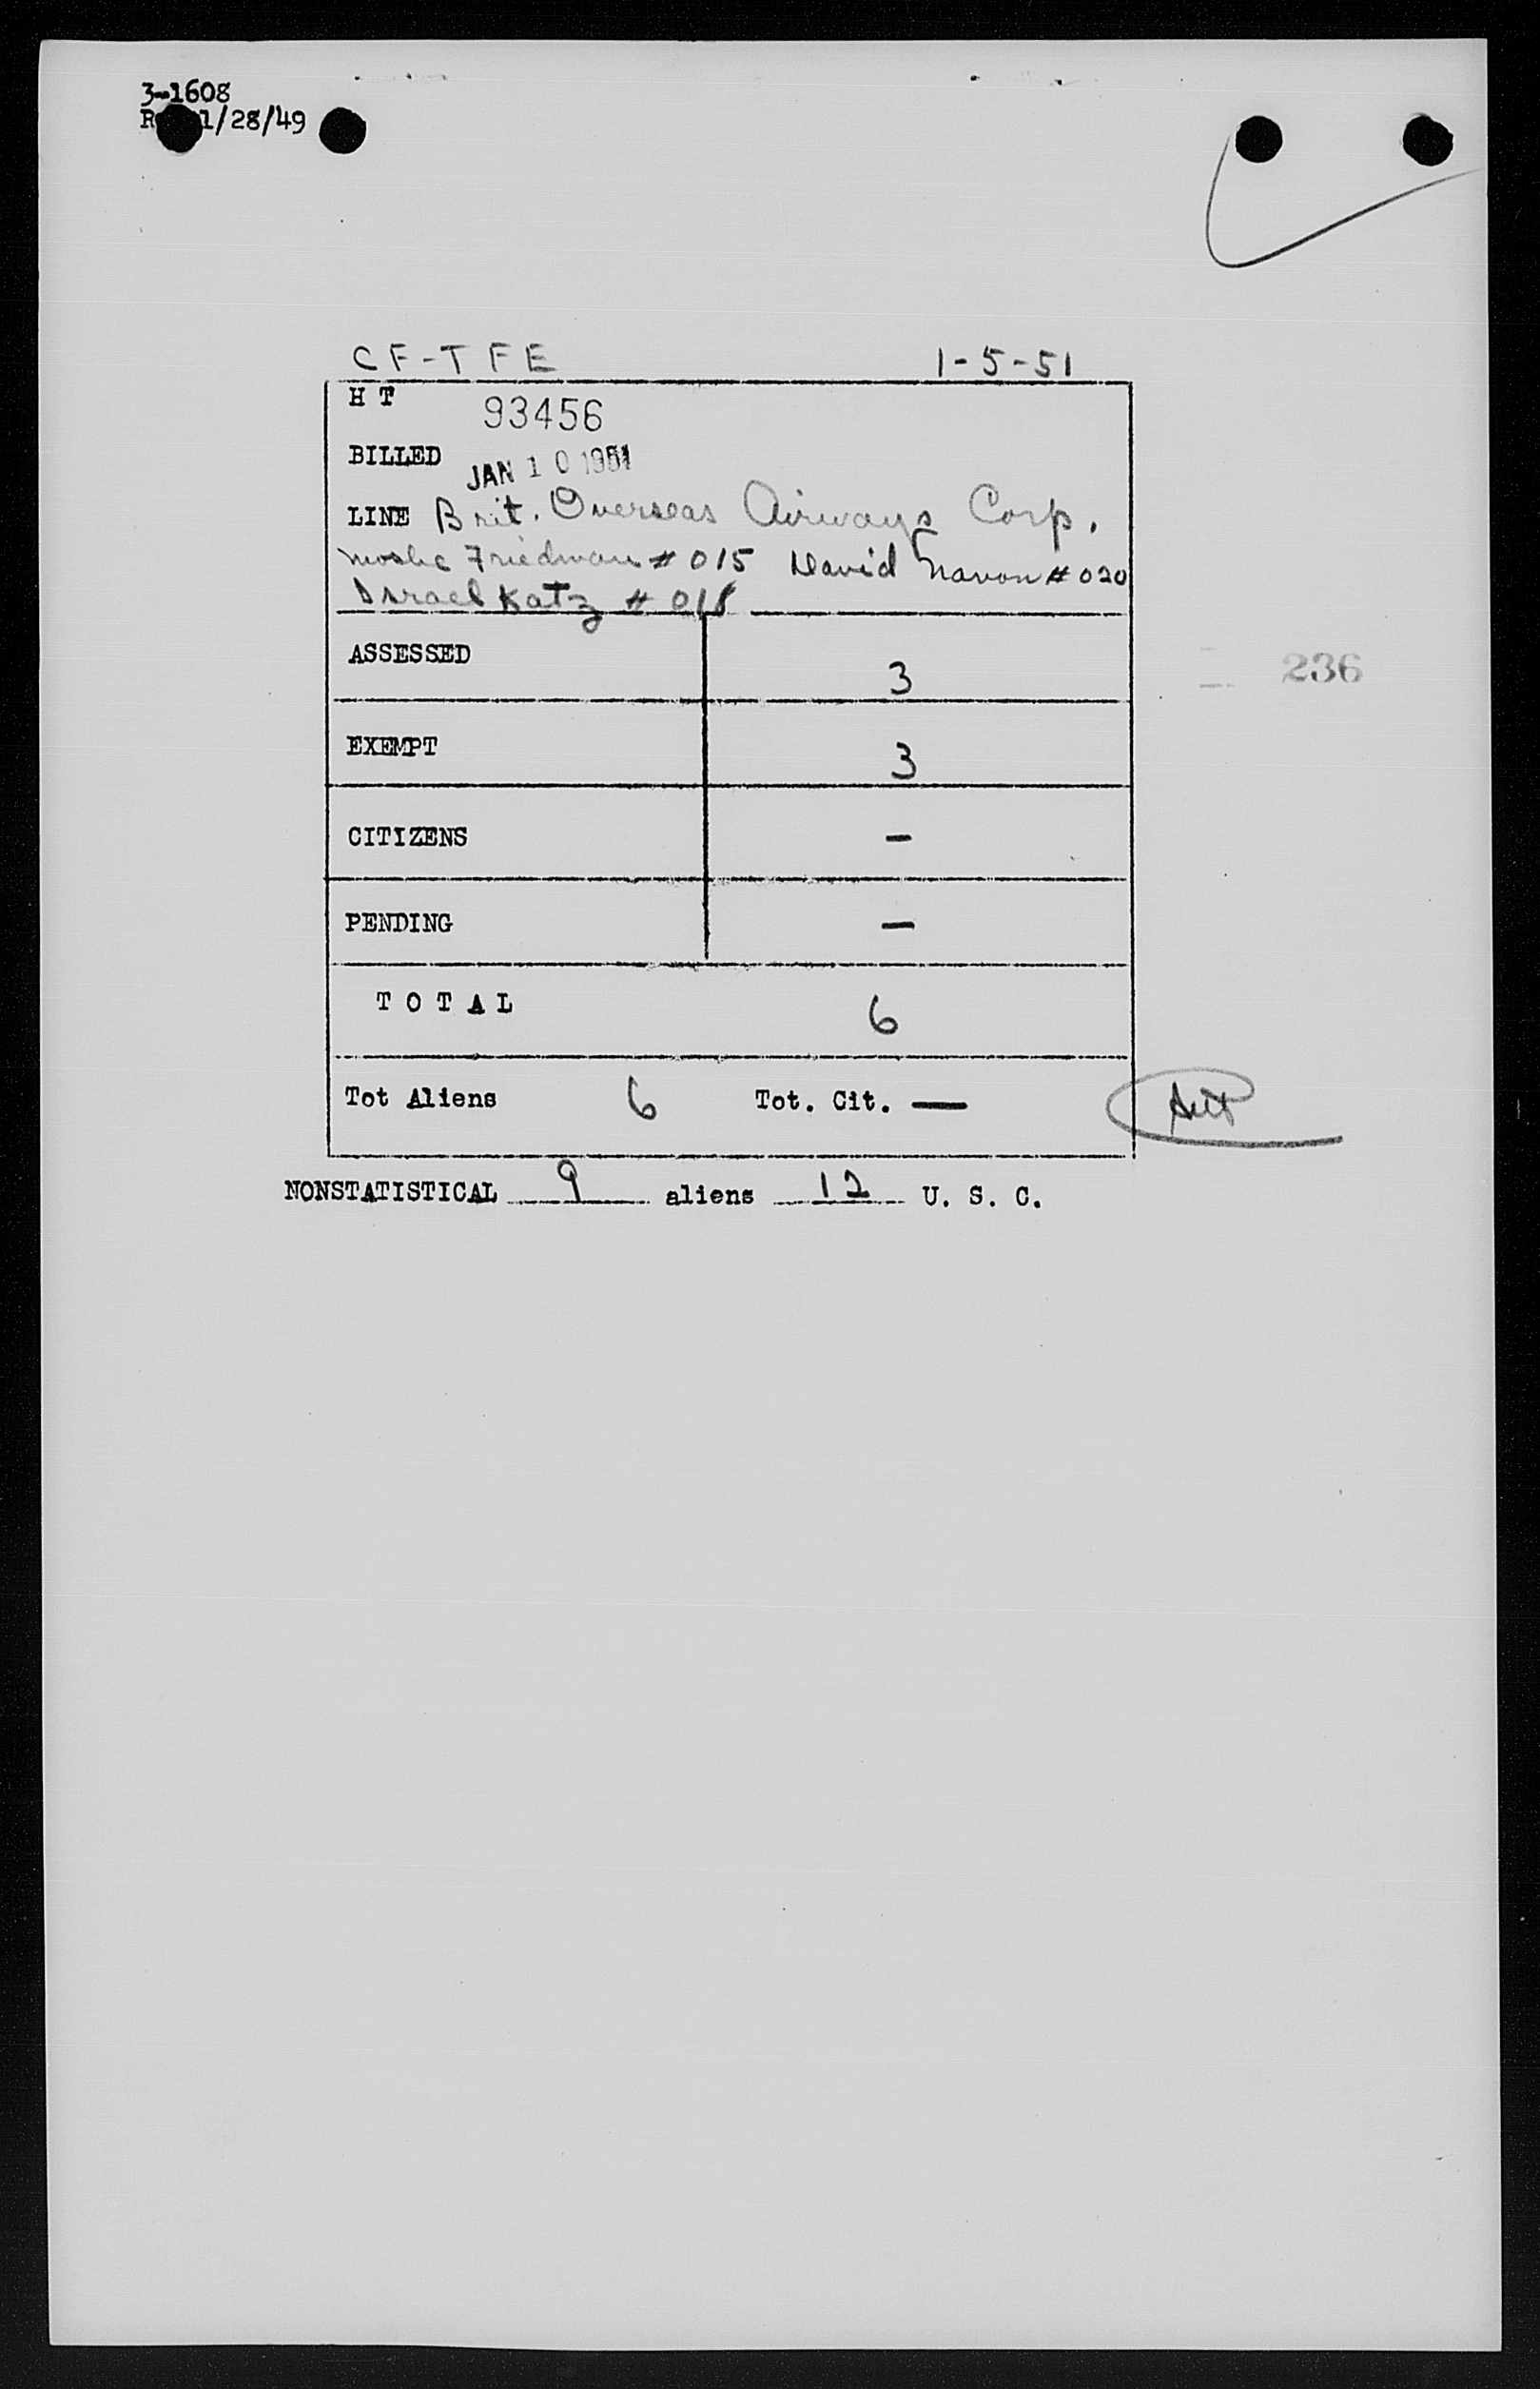 3-1608
1/28/49
CF-TFE 1-5-51
H T 93456
BILLED JAN 10 1951
LINE Brit. Overseas Airways Corp.
Moshe Friedman # 015 David Navon # 020
Israel Katz # 018
ASSESSED 3
236
EXEMPT 3
CITIZENS -
PENDING -
T O T A L 6
Tot Aliens 6 Tot. Cit. -
NONSTATISTICAL 9 aliens 12 U. S. C.